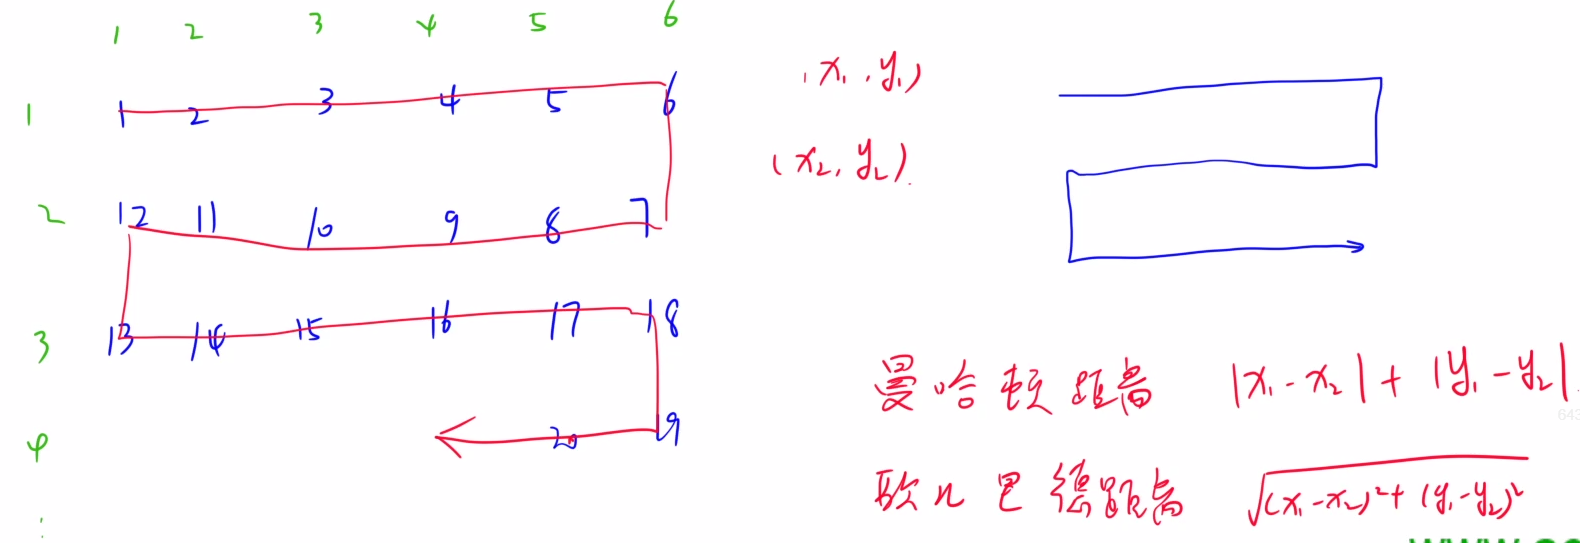 1 2 3 4 5 6
1 1 2 3 4 5 6
2 12 11 10 9 8 7
3 13 14 15 16 17 18
4 20 19
⋮
(x₁,y₁)
(x₂,y₂).
曼哈顿距离 |x₁-x₂|+|y₁-y₂|.
欧几里德距离 √(x₁-x₂)²+(y₁-y₂)²
643